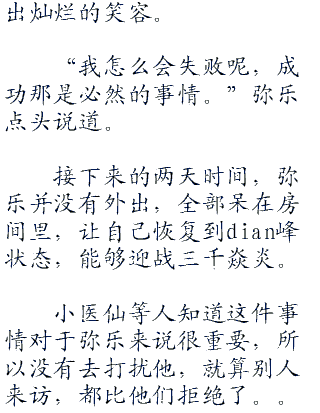 出灿烂的笑容。
“我怎么会失败呢，成
功那是必然的事情。”弥乐
点头说道。
接下来的两天时间，弥
乐并没有外出，全部呆在房
间里，让自己恢复到dian峰
状态，能够迎战三千焱炎。
小医仙等人知道这件事
情对于弥乐来说很重要，所
以没有去打扰他，就算别人
来访，都比他们拒绝了。。